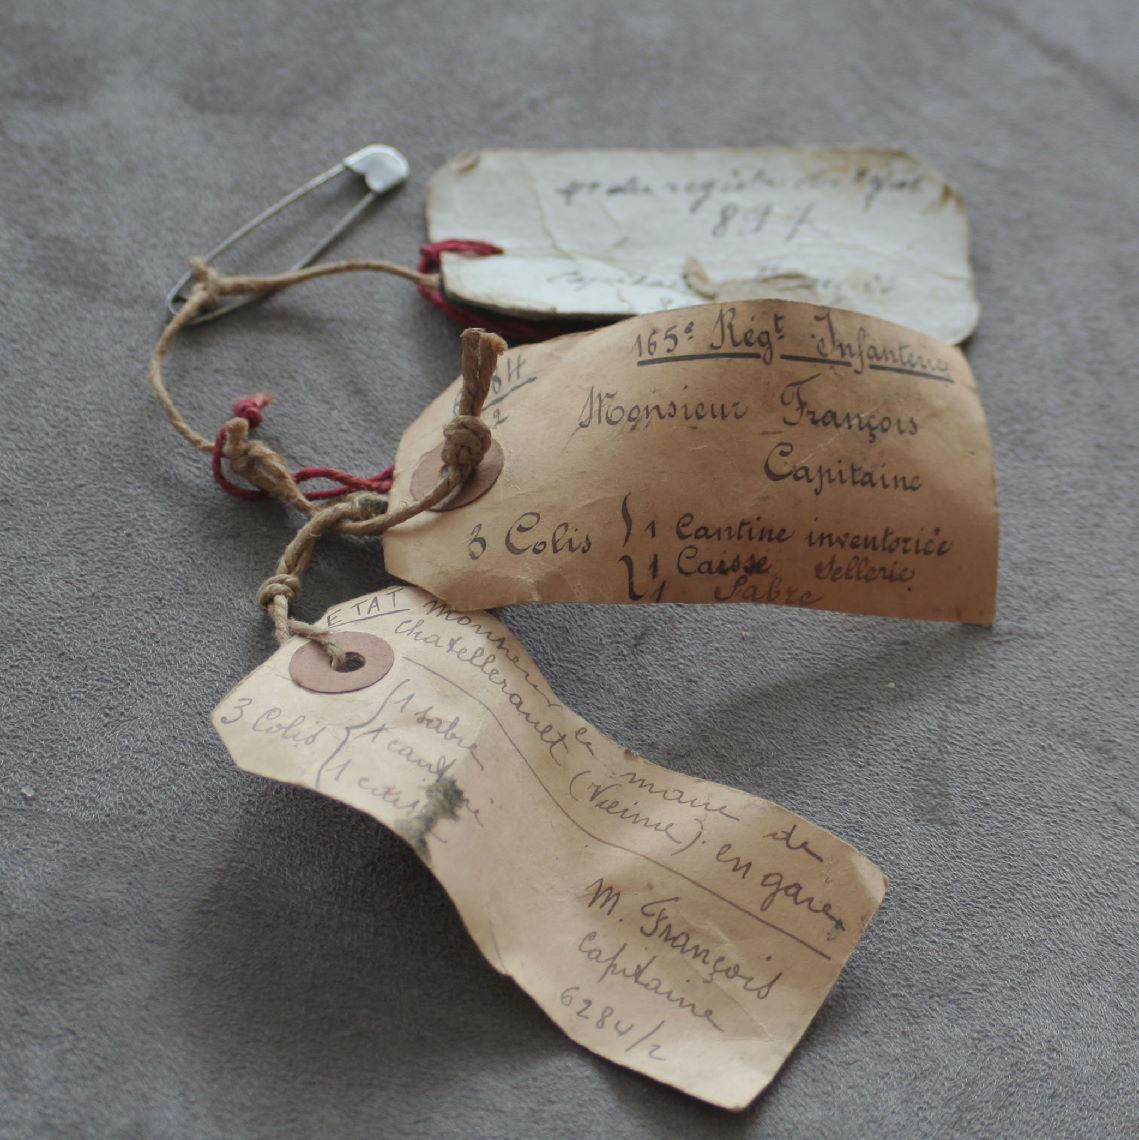 du registre
897
165e Régt Infanterie
Monsieur François
Capitaine
3 Colis { 1 Cantine inventoriée
1 Caisse Sellerie
1 Sabre
ETAT Monsieur le maire de
Chatellerault (Vienne) en gare
3 Colis { 1 sabre
1 cantine
1 caisse
M. François
capitaine
6284/2